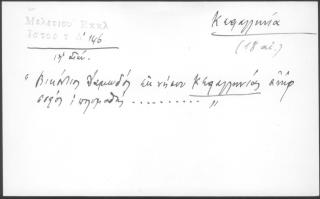 Μελετίου Εκκλ
Ιστορ τ Δ' 146
Κεφαλληνία
(18 αι.)
"Βικέντιος Δαμωδός εκ νήσου Κεφαλληνίας ανήρ
σοφός και πολυμαθής .......... "